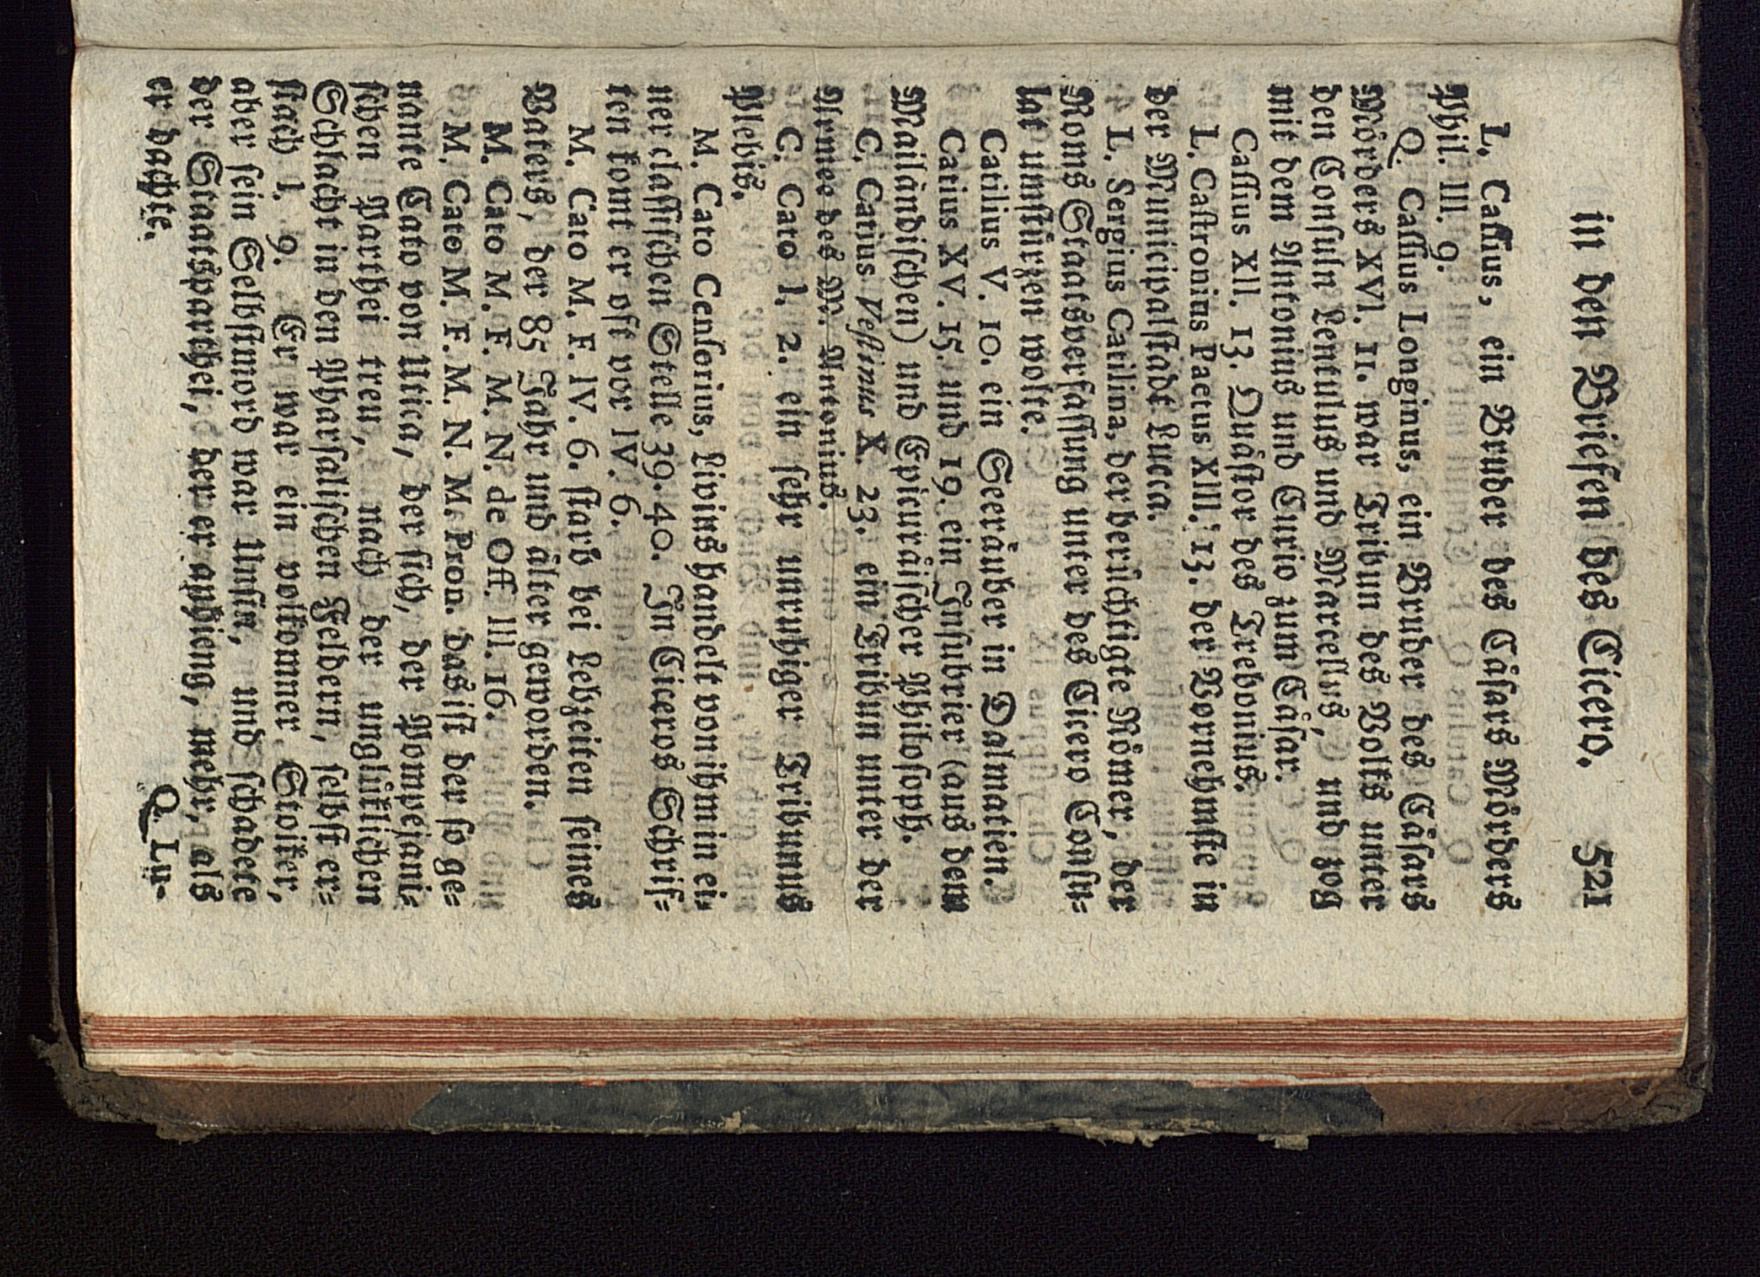 in den Briefen des Cicero. 521
L. Caſſius, ein Bruder des Cäſars Mörders
Phil. III. 9.
Q. Caſſius Longinus, ein Bruder des Cäſars
Mörders XVI. 11. war Tribun des Volks unter
den Conſuln Lentulus und Marcellus, und zog
mit dem Antonius und Curio zum Cäſar.
Caſſius XII. 13. Quäſtor des Trebonius.
L. Caſtronius Paetus XIII. 13. der Vornehmſte in
der Municipalſtadt Lucca.
L. Sergius Catilina, der berüchtigte Römer, der
Roms Staatsverfaſſung unter des Cicero Conſu-
lat umſtürzen wolte.
Catilius V. 10. ein Seeräuber in Dalmatien.
Catius XV. 15. und 19. ein Inſubrier (aus dem
Mailändiſchen) und Epicuräiſcher Philoſoph.
C. Catius Veſtinus X. 23. ein Tribun unter der
Armee des M. Antonius.
C. Cato I. 2. ein ſehr unruhiger Tribunus
Plebis.
M. Cato Cenſorius, Livius handelt von ihm in ei-
ner claſſiſchen Stelle 39. 40. In Ciceros Schrif-
ten komt er oft vor IV. 6.
M. Cato M. F. IV. 6. ſtarb bei Lebzeiten ſeines
Vaters, der 85 Jahr und älter geworden.
M. Cato M. F. M. N. de Off. III. 16.
M. Cato M. F. M. N. M. Pron. das iſt der ſo ge-
nante Cato von Utica, der ſich, der Pompejani-
ſchen Parthei treu, nach der unglüklichen
Schlacht in den Pharſaliſchen Feldern, ſelbſt er-
ſtach I. 9. Er war ein volkomner Stoiker,
aber ſein Selbſtmord war Unſin, und ſchadete
der Staatsparthei, der er anhieng, mehr, als
er dachte.
Q. Lu-